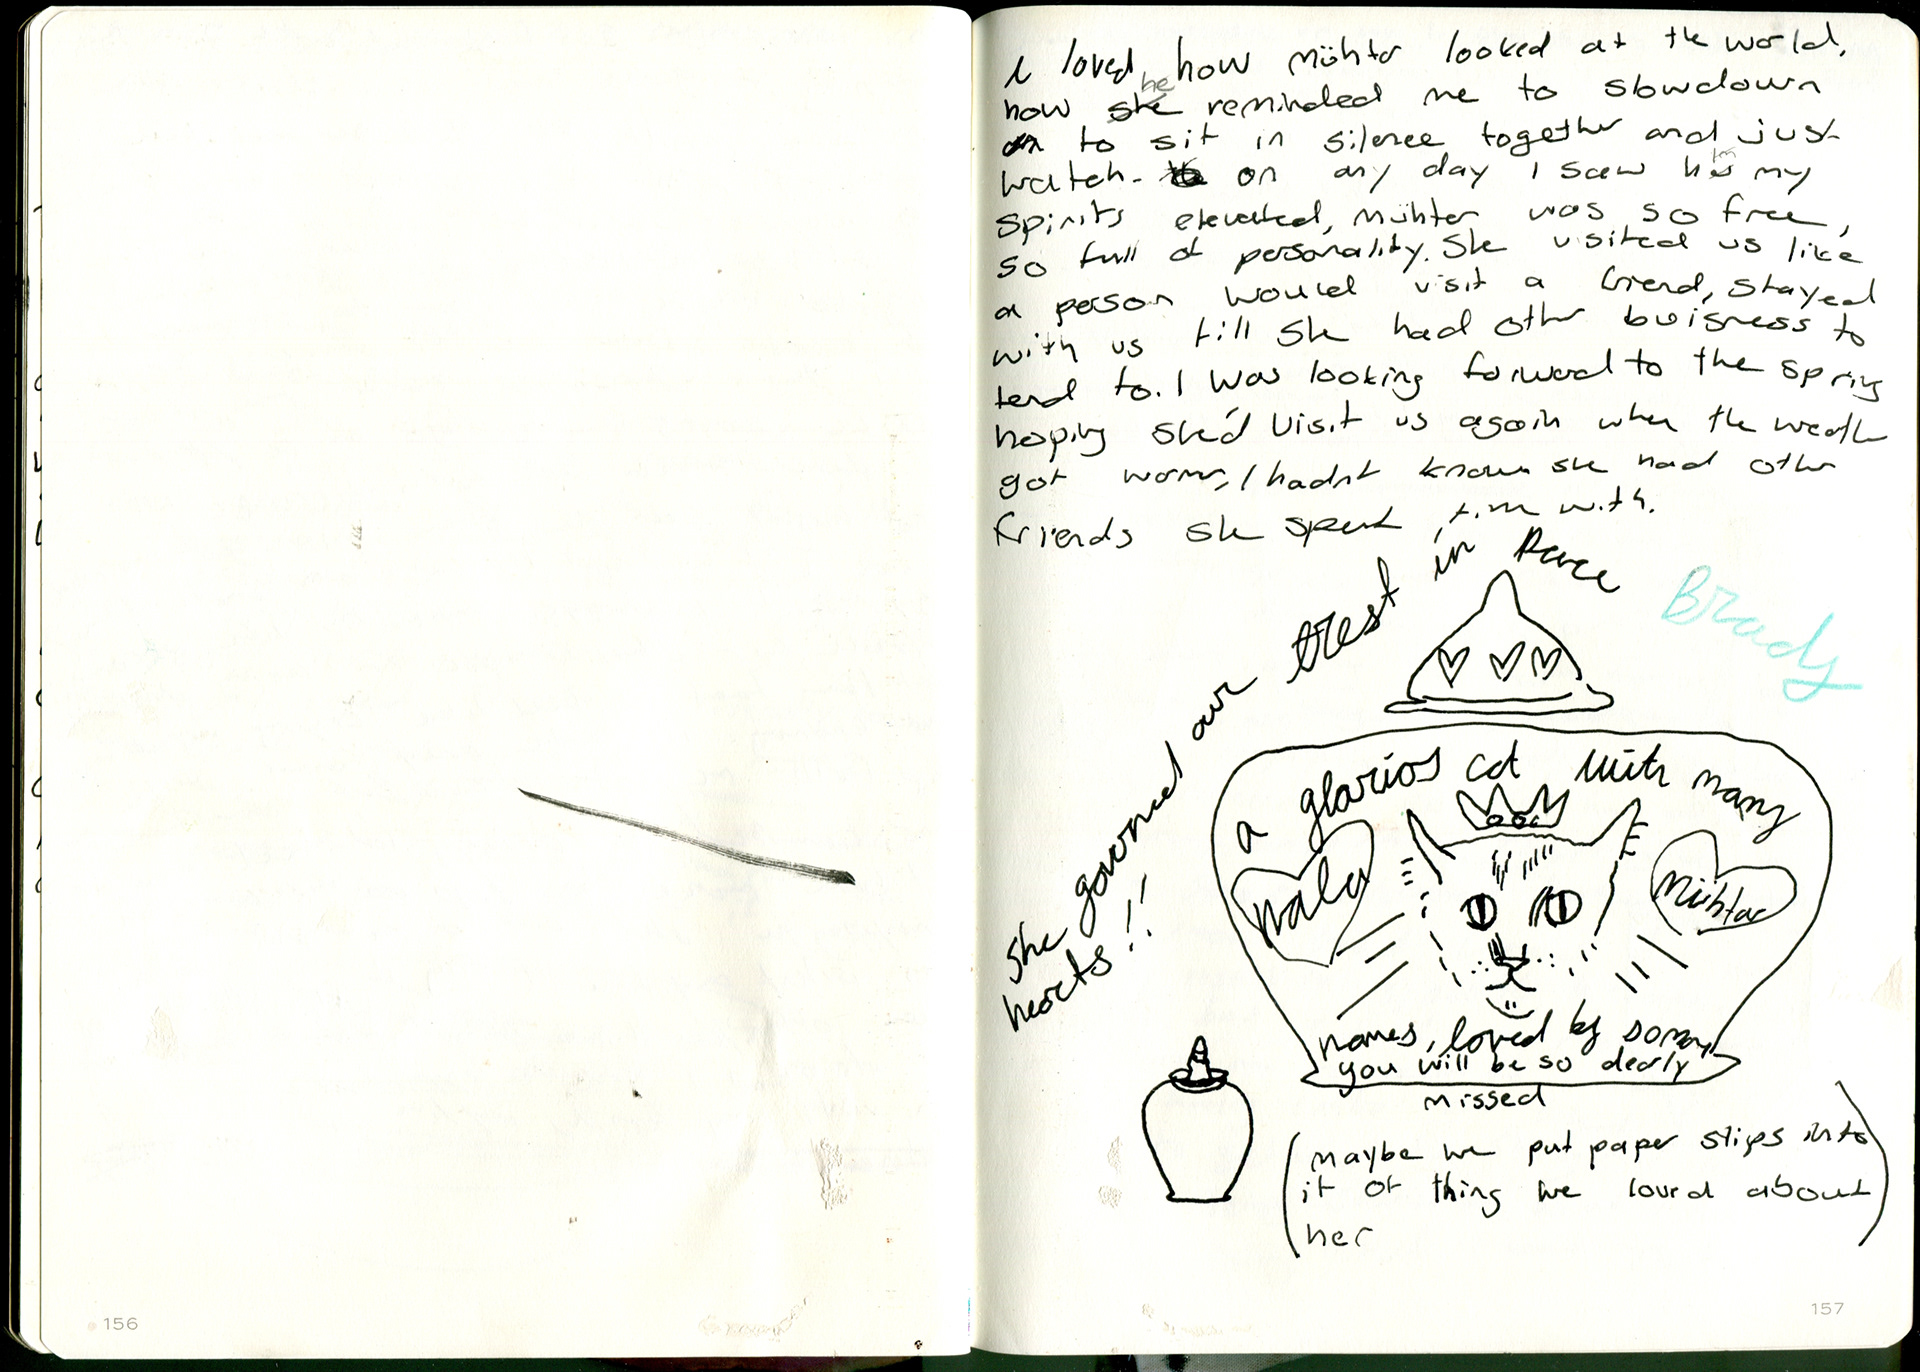 I loved how Mühtar looked at the world.
how she he reminded me to slowdown
to sit in silence together and just
watch. on any day I saw him my
spirits elevated, mühtar was so free,
so full of personality. She visited us like
a person would visit a friend, stayed
with us till she had other buisness to
tend to. I was looking forward to the spring
hoping she'd visit us again when the weather
got warm, I hadnt known she had other
friends she spent time with.
rest in Peace
Brady
she governed our
hearts!!
a glorios cat with many
Mühtar
names, loved by somany
you will be so dearly
missed
(maybe we put paper slips into
it of thing we loved about
her)
156
157